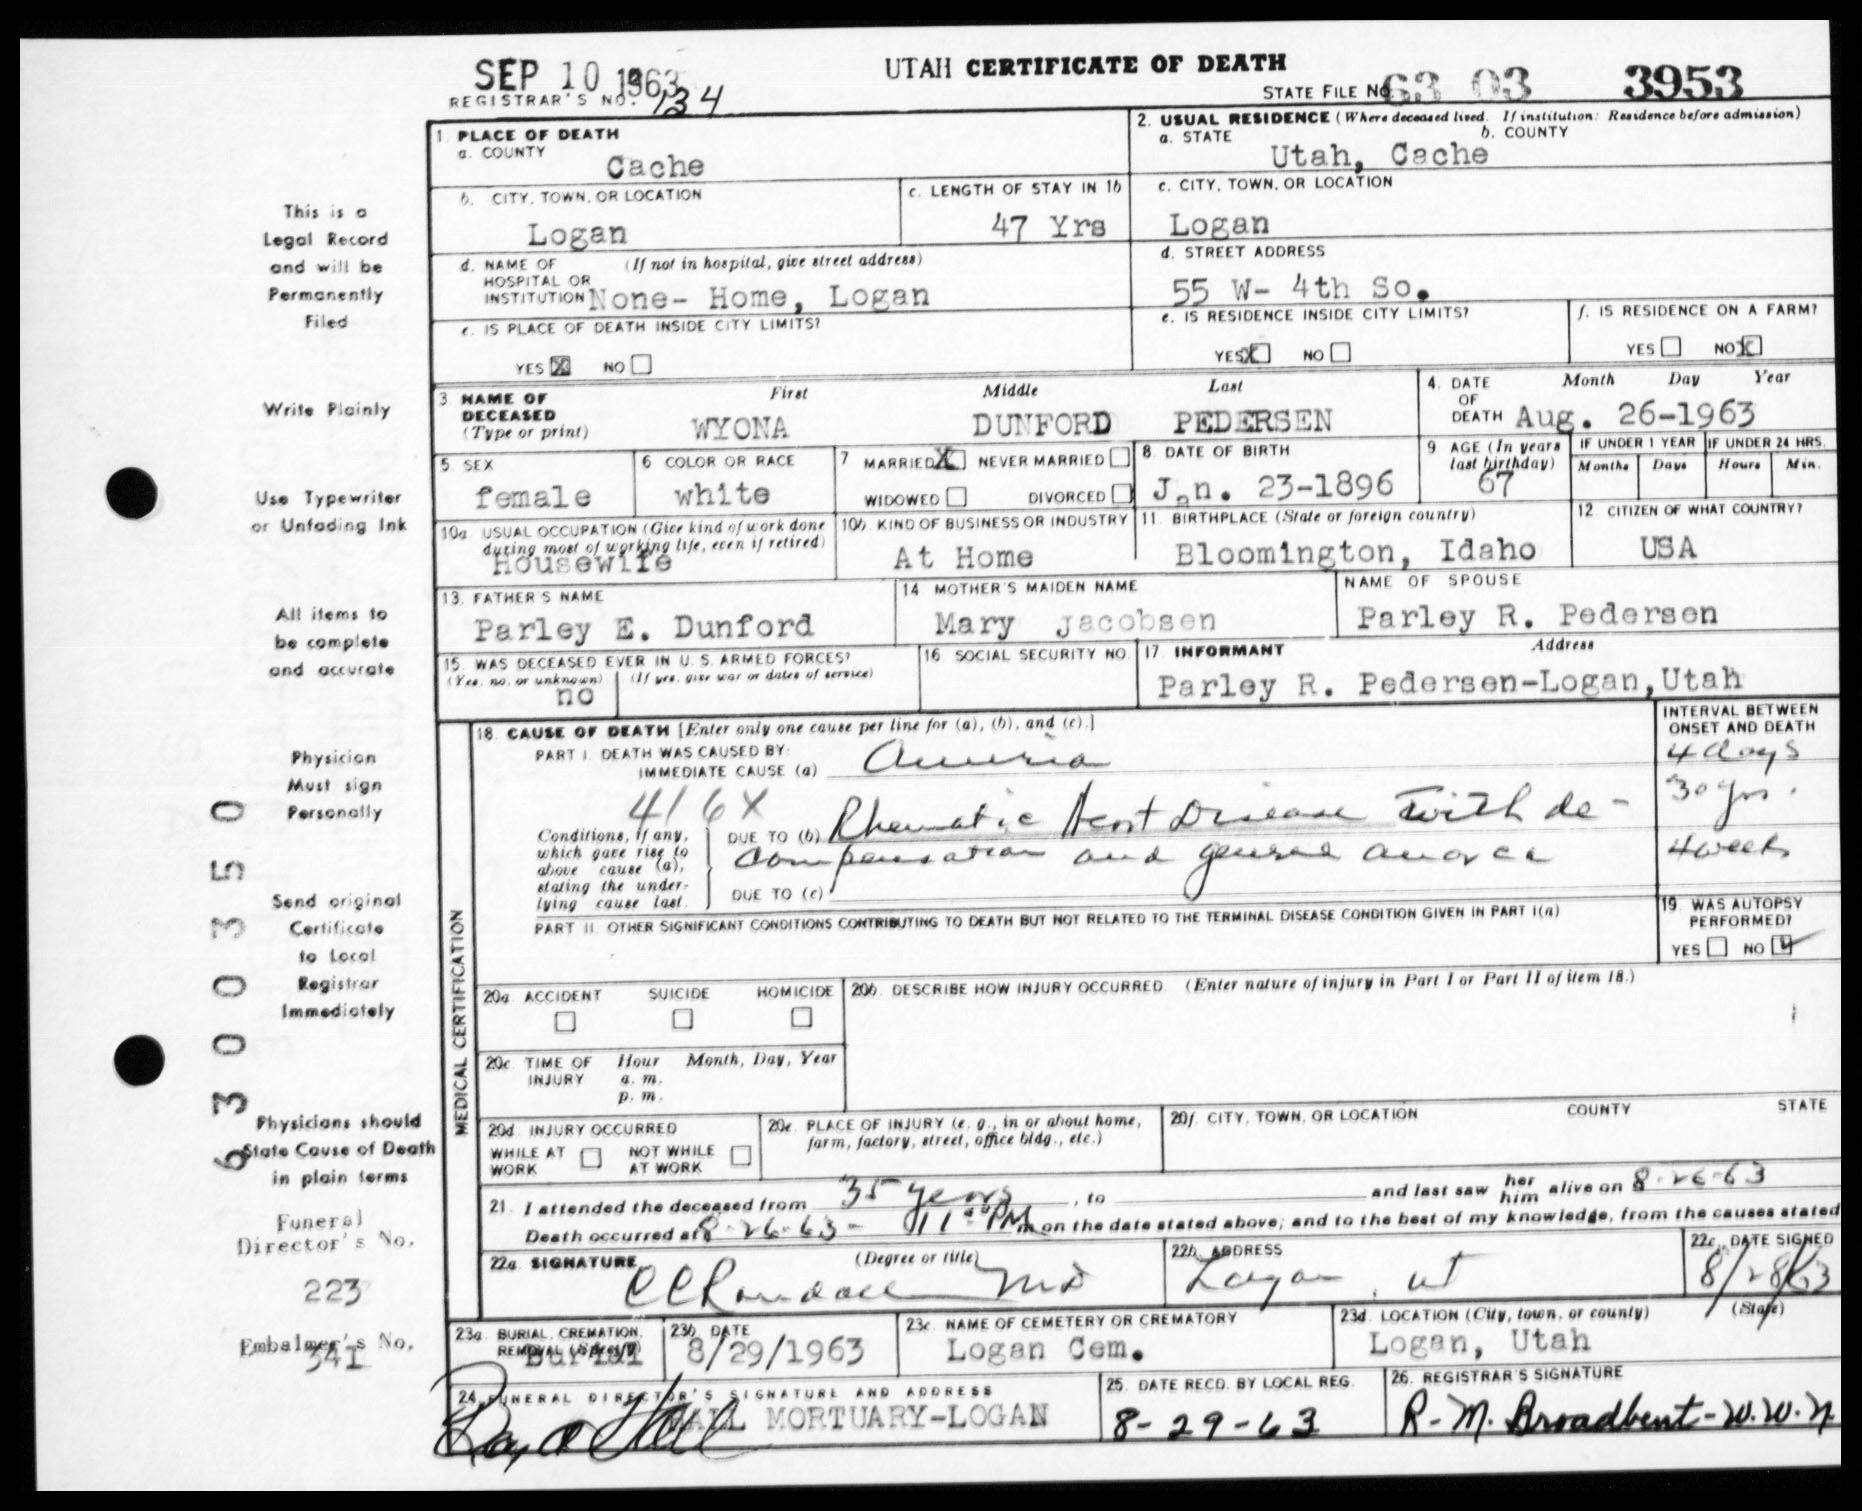 SEP 10 1963
UTAH CERTIFICATE OF DEATH
REGISTRAR'S NO. 134
STATE FILE NO. 63 03 3953
1. PLACE OF DEATH
a. COUNTY
Cache
2. USUAL RESIDENCE (Where deceased lived. If institution: Residence before admission)
a. STATE b. COUNTY
Utah, Cache
b. CITY, TOWN, OR LOCATION
Logan
c. LENGTH OF STAY IN 1b
47 Yrs
c. CITY, TOWN, OR LOCATION
Logan
d. NAME OF HOSPITAL OR INSTITUTION (If not in hospital, give street address)
None- Home, Logan
d. STREET ADDRESS
55 W- 4th So.
e. IS PLACE OF DEATH INSIDE CITY LIMITS?
YES X NO
e. IS RESIDENCE INSIDE CITY LIMITS?
YES X NO
f. IS RESIDENCE ON A FARM?
YES NO X
3 NAME OF DECEASED (Type or print)
First Middle Last
WYONA DUNFORD PEDERSEN
4. DATE OF DEATH
Month Day Year
Aug. 26-1963
5 SEX
female
6 COLOR OR RACE
white
7 MARRIED X NEVER MARRIED
WIDOWED DIVORCED
8. DATE OF BIRTH
Jan. 23-1896
9 AGE (In years last birthday)
67
IF UNDER 1 YEAR IF UNDER 24 HRS.
Months Days Hours Min.
10a. USUAL OCCUPATION (Give kind of work done during most of working life, even if retired)
Housewife
10b. KIND OF BUSINESS OR INDUSTRY
At Home
11. BIRTHPLACE (State or foreign country)
Bloomington, Idaho
12. CITIZEN OF WHAT COUNTRY?
USA
13. FATHER'S NAME
Parley E. Dunford
14 MOTHER'S MAIDEN NAME
Mary Jacobsen
NAME OF SPOUSE
Parley R. Pedersen
15. WAS DECEASED EVER IN U. S. ARMED FORCES?
(Yes, no, or unknown) (If yes, give war or dates of service)
no
16 SOCIAL SECURITY NO.
17. INFORMANT Address
Parley R. Pedersen-Logan,Utah
MEDICAL CERTIFICATION
18. CAUSE OF DEATH [Enter only one cause per line for (a), (b), and (c).]
INTERVAL BETWEEN ONSET AND DEATH
PART I. DEATH WAS CAUSED BY:
IMMEDIATE CAUSE (a)
4 days
416X
Conditions, if any, which gave rise to above cause (a), stating the underlying cause last.
DUE TO (b) Rheumatic Heart Disease with de-
30 yrs.
compensation and general
4 weeks
DUE TO (c)
PART II. OTHER SIGNIFICANT CONDITIONS CONTRIBUTING TO DEATH BUT NOT RELATED TO THE TERMINAL DISEASE CONDITION GIVEN IN PART I(a)
19. WAS AUTOPSY PERFORMED?
YES NO ✓
20a. ACCIDENT SUICIDE HOMICIDE
20b. DESCRIBE HOW INJURY OCCURRED. (Enter nature of injury in Part I or Part II of item 18.)
20c. TIME OF INJURY
Hour Month, Day, Year
a. m.
p. m.
20d. INJURY OCCURRED
WHILE AT WORK NOT WHILE AT WORK
20e. PLACE OF INJURY (e. g., in or about home, farm, factory, street, office bldg., etc.)
20f. CITY, TOWN, OR LOCATION COUNTY STATE
21. I attended the deceased from 35 years, to and last saw her him alive on 8-26-63
Death occurred at 8-26-63- 11 PM m on the date stated above; and to the best of my knowledge, from the causes stated
22a. SIGNATURE (Degree or title)
CC Randall MD
22b. ADDRESS
Logan, Ut
22c. DATE SIGNED
8/28/63
23a. BURIAL, CREMATION, REMOVAL (Specify)
Burial
23b. DATE
8/29/1963
23c. NAME OF CEMETERY OR CREMATORY
Logan Cem.
23d. LOCATION (City, town, or county) (State)
Logan, Utah
24. FUNERAL DIRECTOR'S SIGNATURE AND ADDRESS
HALL MORTUARY-LOGAN
25. DATE RECD. BY LOCAL REG.
8-29-63
26. REGISTRAR'S SIGNATURE
R-M. Broadbent-W.W.N.
This is a
Legal Record
and will be
Permanently
Filed
Write Plainly
Use Typewriter
or Unfading Ink
All items to
be complete
and accurate
Physician
Must sign
Personally
Send original
Certificate
to Local
Registrar
Immediately
Physicians should
State Cause of Death
in plain terms
Funeral
Director's No.
223
Embalmer's No.
341
6300350